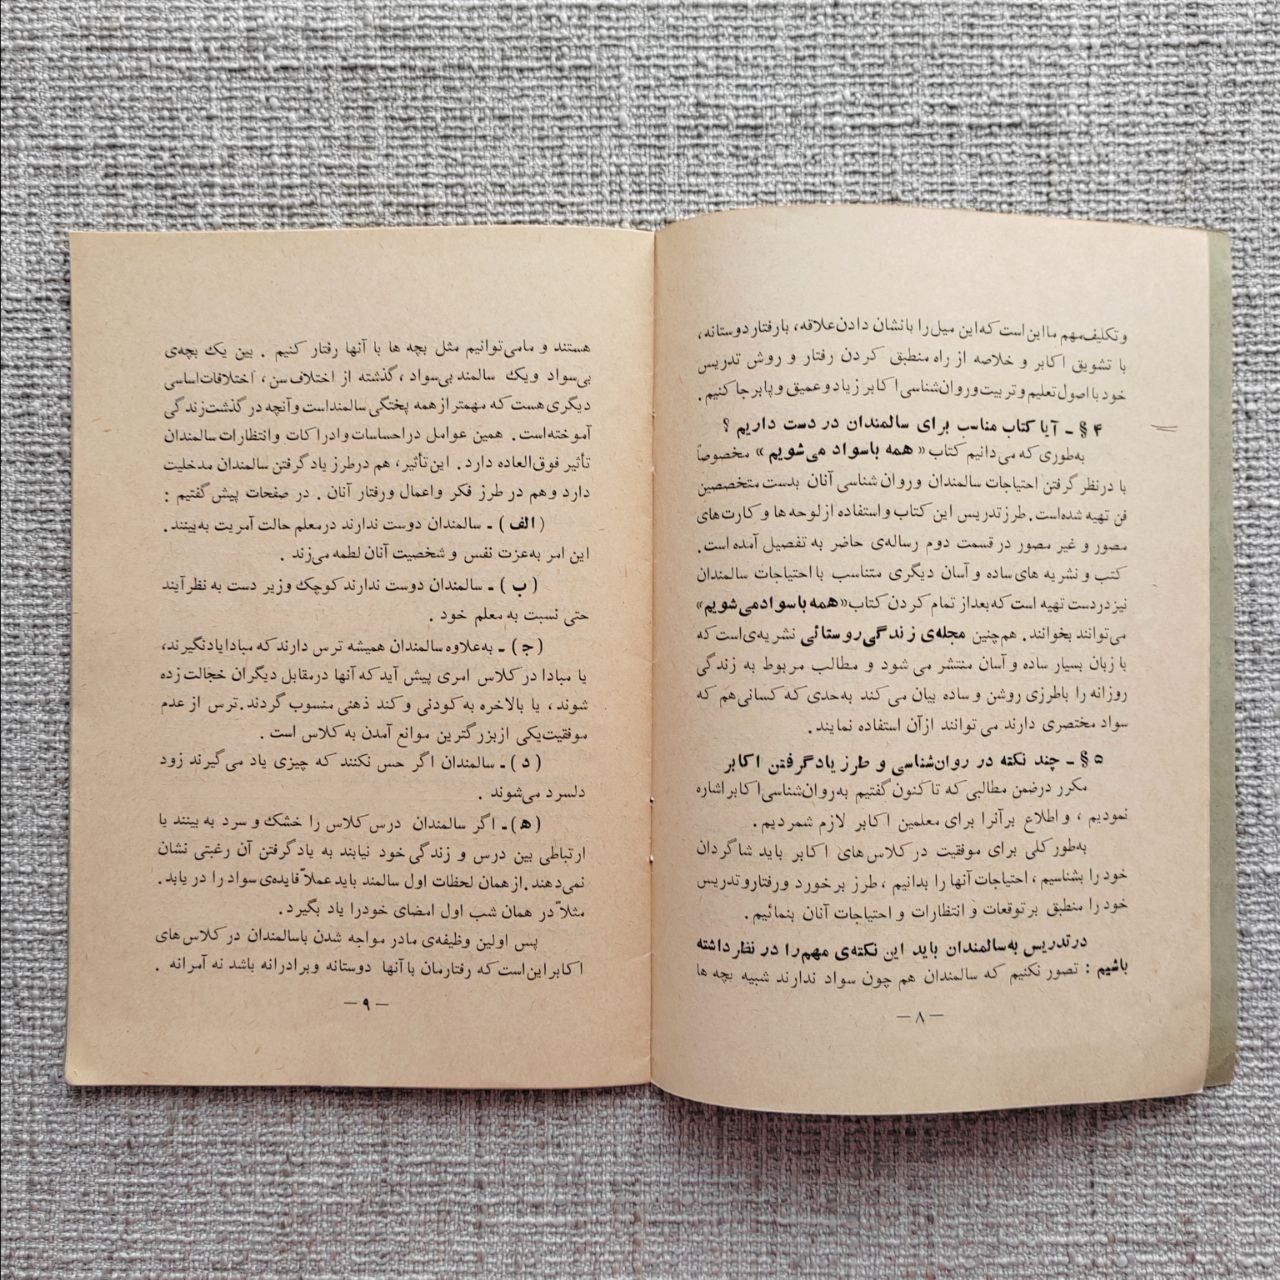 وتکلیف مهم ما این است که این میل را با نشان دادن علاقه، با رفتار دوستانه،
با تشویق اکابر و خلاصه از راه منطبق کردن رفتار و روش تدریس
خود با اصول تعلیم و تربیت و روان‌شناسی اکابر زیاد و عمیق و پا بر جا کنیم.
§ ۴ ـ آیا کتاب مناسب برای سالمندان در دست داریم ؟
به‌طوری که می‌دانیم کتاب « همه باسواد می‌شویم » مخصوصاً
با در نظر گرفتن احتیاجات سالمندان وروان شناسی آنان بدست متخصصین
فن تهیه شده‌است. طرز تدریس این کتاب و استفاده از لوحه ها و کارت های
مصور و غیر مصور در قسمت دوم رساله‌ی حاضر به تفصیل آمده است.
کتب و نشریه های ساده و آسان دیگری متناسب با احتیاجات سالمندان
نیز در دست تهیه است که بعد از تمام کردن کتاب «همه باسواد می‌شویم»
می‌توانند بخوانند. هم‌چنین مجله‌ی زندگی روستائی نشریه‌ی‌است که
با زبان بسیار ساده و آسان منتشر می شود و مطالب مربوط به زندگی
روزانه را باطرزی روشن و ساده بیان می‌کند به‌حدی که کسانی هم که
سواد مختصری دارند می توانند از آن استفاده نمایند.
§ ۵ ـ چند نکته در روان‌شناسی و طرز یاد گرفتن اکابر
مکرر در ضمن مطالبی که تا کنون گفتیم به‌روان‌شناسی اکابر اشاره
نمودیم ، و اطلاع بر آنرا برای معلمین اکابر لازم شمردیم.
به‌طور کلی برای موفقیت در کلاس های اکابر باید شاگردان
خود را بشناسیم ، احتیاجات آنها را بدانیم ، طرز برخورد ورفتار و تدریس
خود را منطبق بر توقعات و انتظارات و احتیاجات آنان بنمائیم.
در تدریس به‌سالمندان باید این نکته‌ی مهم را در نظر داشته
باشیم : تصور نکنیم که سالمندان هم چون سواد ندارند شبیه بچه ها
— ۸ —
هستند و مامی‌توانیم مثل بچه ها با آنها رفتار کنیم . بین یك بچه‌ی
بی‌سواد ویك سالمند بی‌سواد ، گذشته از اختلاف سن ، اختلافات اساسی
دیگری هست که مهمتر از همه پختگی سالمند است و آنچه در گذشت زندگی
آموخته‌است. همین عوامل در احساسات وادراکات وانتظارات سالمندان
تأثیر فوق‌العاده دارد. این تأثیر، هم در طرز یاد گرفتن سالمندان مدخلیت
دارد وهم در طرز فکر و اعمال ورفتار آنان . در صفحات پیش گفتیم :
( الف ) ـ سالمندان دوست ندارند در معلم حالت آمریت به‌بینند.
این امر به‌عزت نفس و شخصیت آنان لطمه می‌زند .
( ب ) ـ سالمندان دوست ندارند کوچك وزیر دست به نظر آیند
حتی نسبت به معلم خود .
( ج ) ـ به‌علاوه سالمندان همیشه ترس دارند که مبادا یاد نگیرند،
یا مبادا در کلاس امری پیش آید که آنها در مقابل دیگران خجالت زده
شوند ، یا بالاخره به کودنی و کند ذهنی منسوب گردند. ترس از عدم
موفقیت‌یکی از بزرگترین موانع آمدن به کلاس است .
( د ) ـ سالمندان اگر حس نکنند که چیزی یاد می گیرند زود
دلسرد می‌شوند .
( ه ) ـ اگر سالمندان درس کلاس را خشك و سرد به بینند یا
ارتباطی بین درس و زندگی خود نیابند به یاد گرفتن آن رغبتی نشان
نمی‌دهند. از همان لحظات اول سالمند باید عملاً فایده‌ی سواد را در یابد.
مثلاً در همان شب اول امضای خود را یاد بگیرد.
پس اولین وظیفه‌ی مادر مواجه شدن باسالمندان در کلاس های
اکابر این است که رفتارمان با آنها دوستانه وبرادرانه باشد نه آمرانه .
— ۹ —